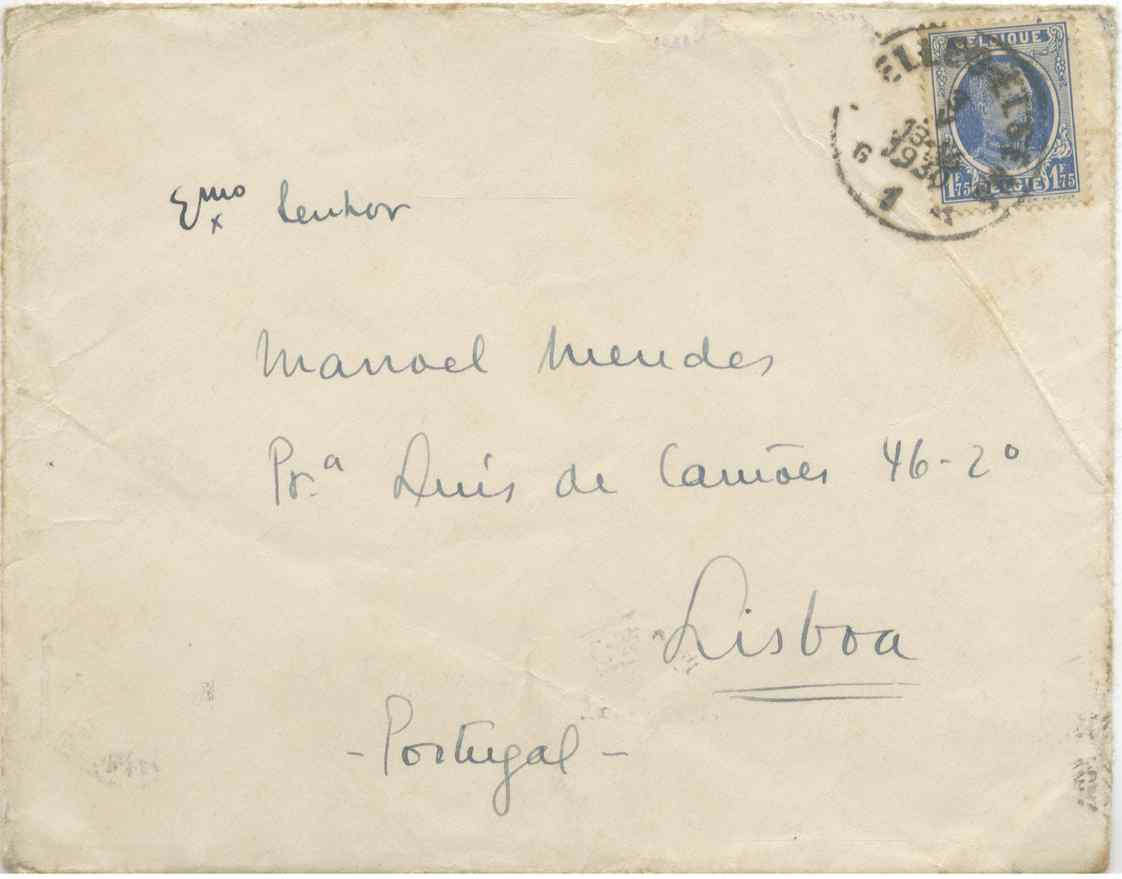 BELGIQUE
1930
1
G
1F75 BELGIË 1F75
Exmo Senhor
Manoel Mendes
Pr.ª Luís de Camões 46-2º
Lisboa
- Portugal -